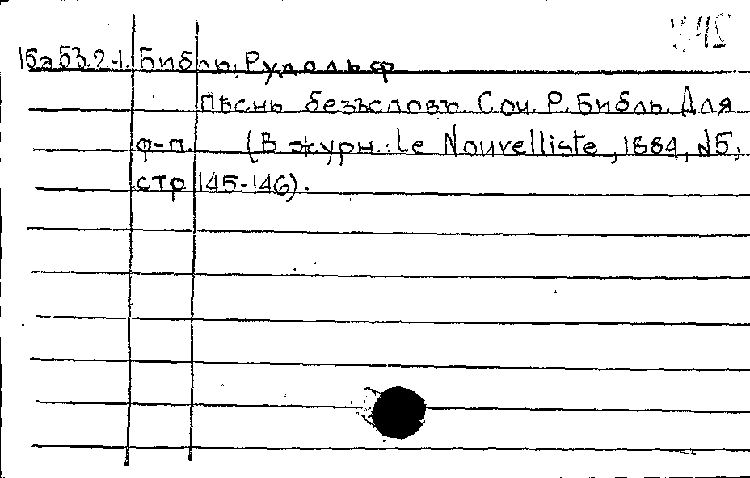 15а53.2-1. Библь, Рудольф
Пѣснь безъ словъ. Соч. Р. Библь. Для
ф-п. (В журн.: Le Nouvelliste, 1884, №5,
стр 145-146).